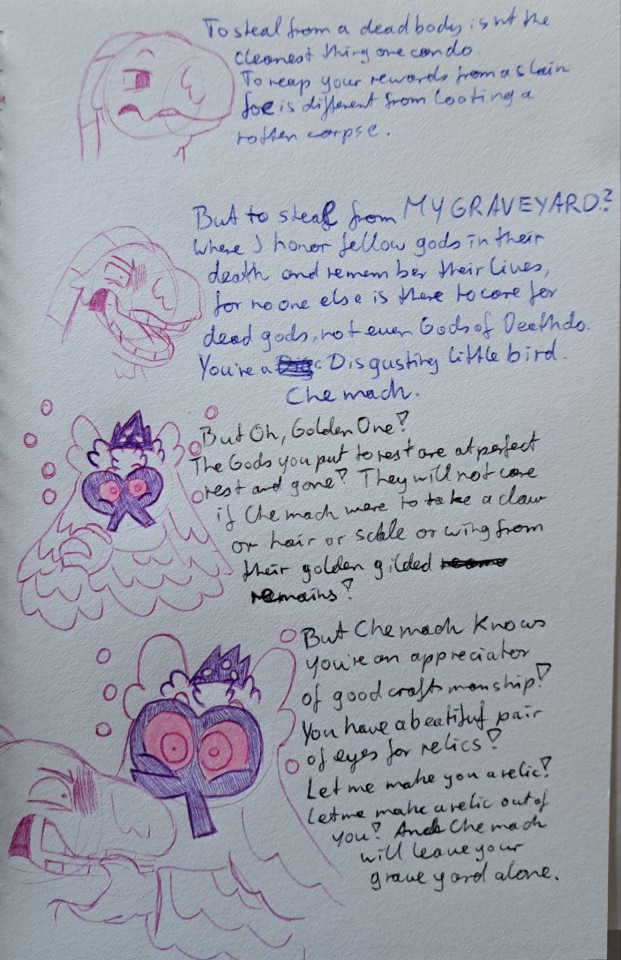 To steal from a dead body isnt the
cleanest thing one can do.
To reap your rewards from a slain
foe is different from looting a
rotten corpse.
But to steal from MY GRAVEYARD?
Where I honor fellow gods in their
death and remember their lives,
for no one else is there to care for
dead gods, not even Gods of Death do.
You're a Disgusting little bird.
Chemach.
But Oh, Golden One!
The Gods you put to rest are at perfect
rest and gone! They will not care
if Chemach were to take a claw
or hair or scale or wing from
their golden gilded
remains!
But Chemach Knows
you're an appreciator
of good craftsmanship!
You have a beatiful pair
of eyes for relics!
Let me make you a relic!
Let me make a relic out of
you! And Chemach
will leave your
graveyard alone.